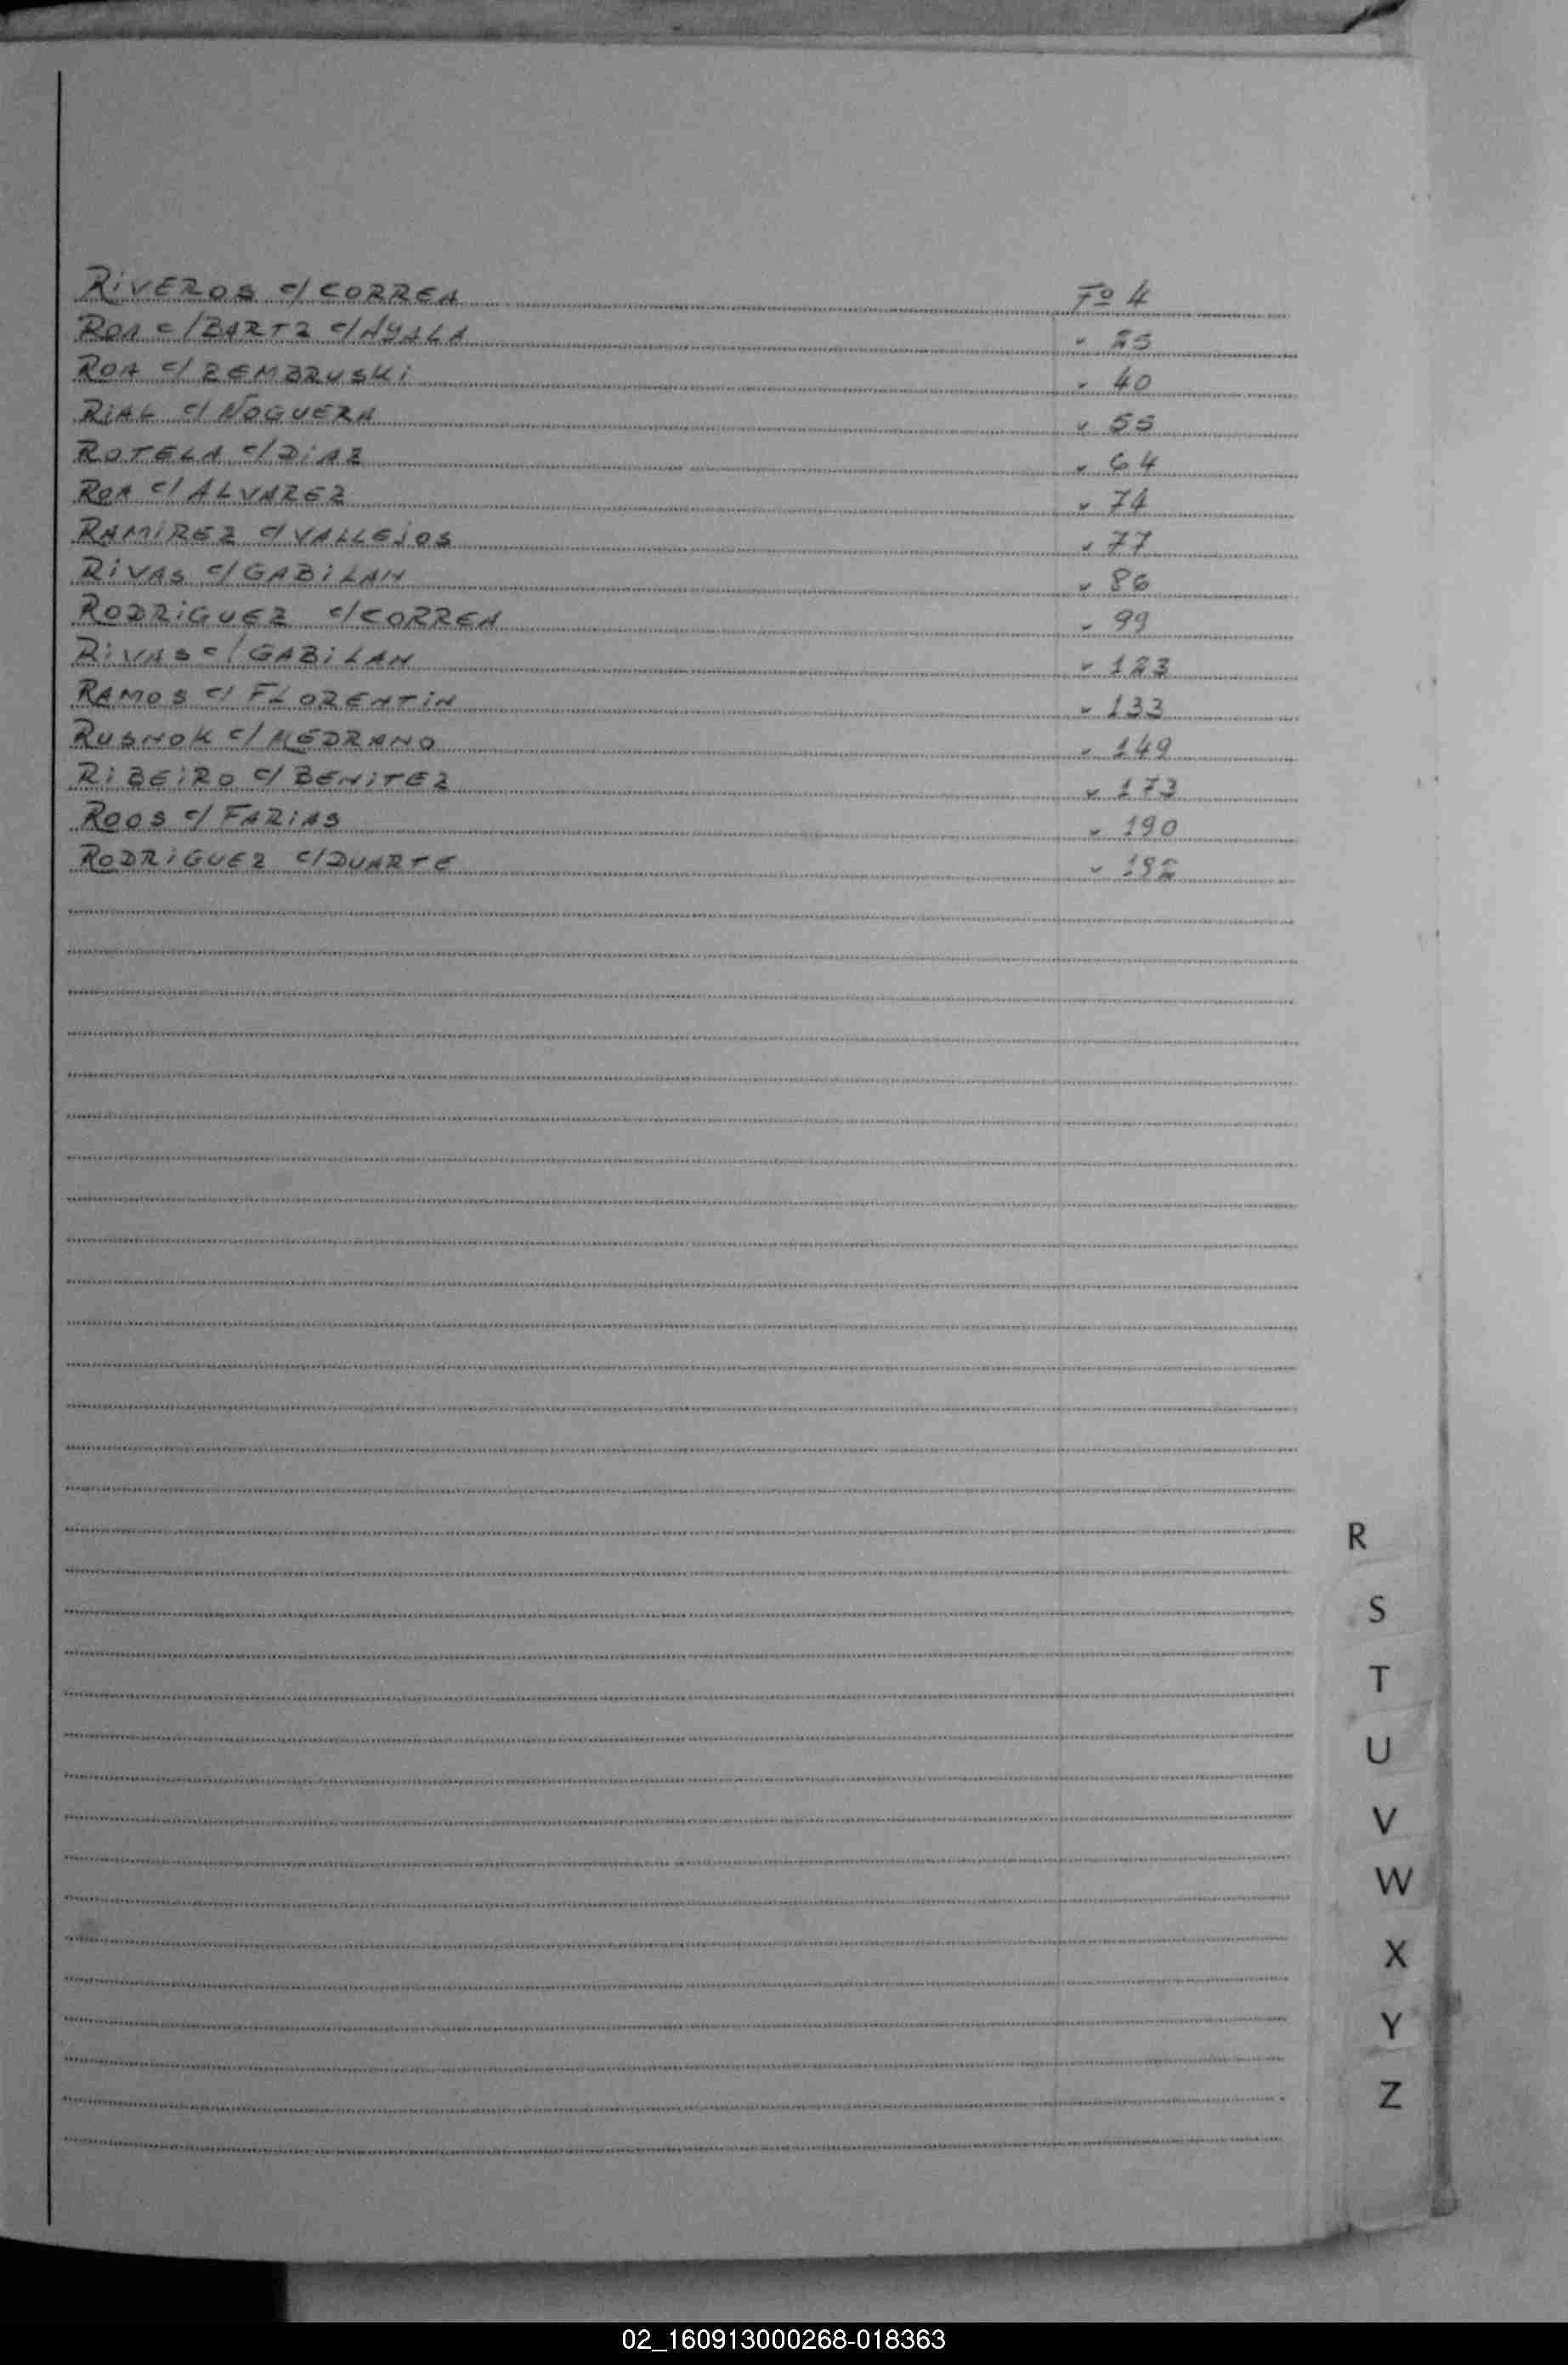 RIVEROS c/ CORREA Fº 4
ROA c/ BARTZ c/ AYALA " 25
ROA c/ ZEMBRUSKI " 40
RIAL c/ NOGUERA " 55
ROTELA c/ DIAZ " 64
ROA c/ ALVAREZ " 74
RAMIREZ c/ VALLEJOS " 77
RIVAS c/ GABILAN " 86
RODRIGUEZ c/ CORREA " 99
RIVAS c/ GABILAN " 123
RAMOS c/ FLORENTIN " 133
RUSNOK c/ MEDRANO " 149
RIBEIRO c/ BENITEZ " 173
ROOS c/ FARIAS " 190
RODRIGUEZ c/ DUARTE "
R
S
T
U
V
W
X
Y
Z
02_160913000268-018363